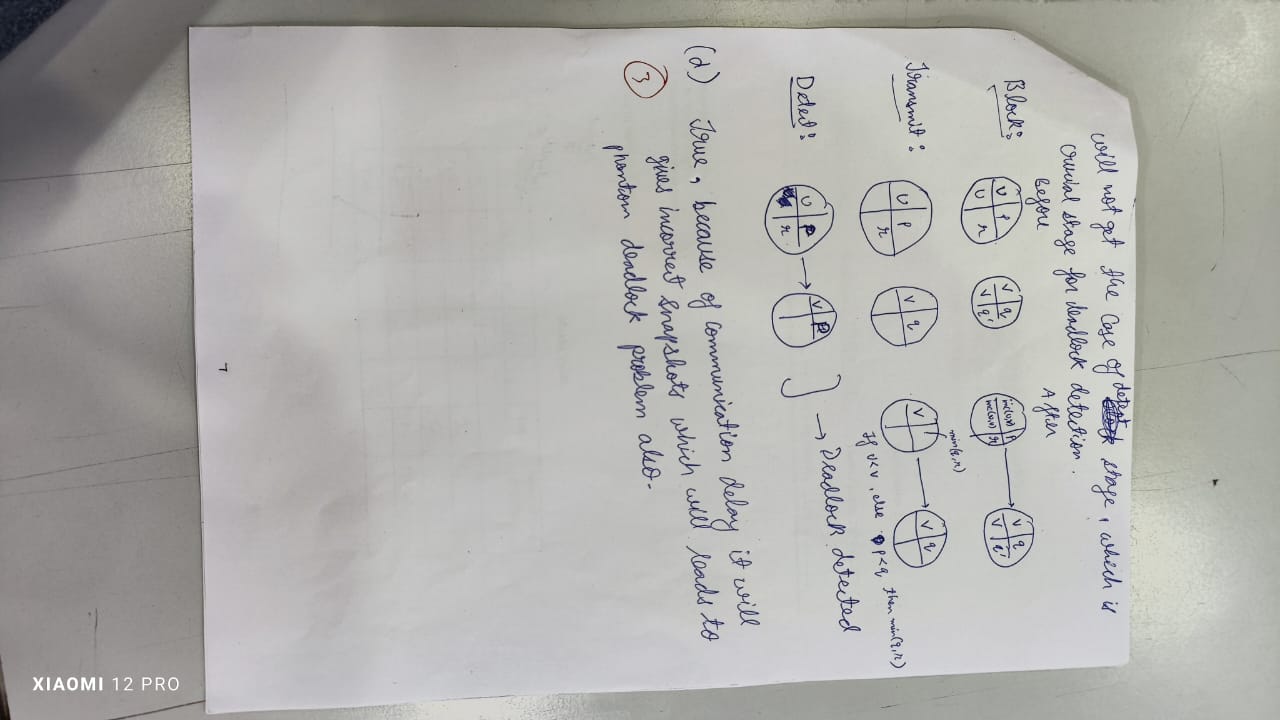 will not get the case of detect stage, which is
crucial stage for deadlock detection.
Before
After
Block:
U P
U r
V q
V q'
inc(u,v) P
inc(u,v) r
V q
V q'
Transmit:
U P
r
V q
min(q,r)
V
V q
If u<v, else P<q then min(q,r)
Detect:
U P
r
V P
→ Deadlock detected
(d) True, because of communication delay it will
gives incorrect snapshots which will leads to
phantom deadlock problem also.
3
7
XIAOMI 12 PRO